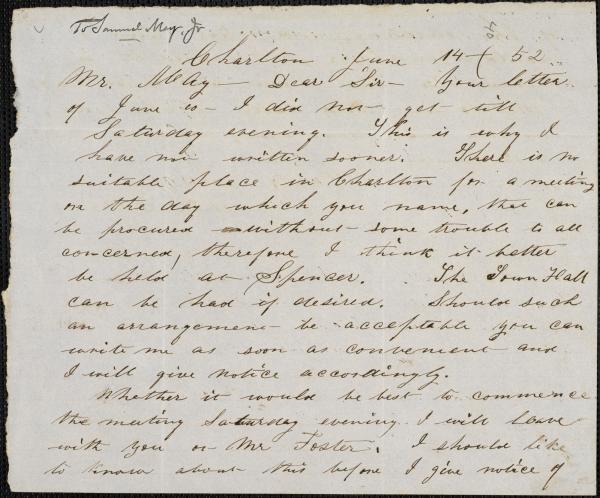 To Samuel May, Jr
Charlton June 14 / 52
Mr. May — Dear Sir — Your letter
of June 10 — I did not get till
Saturday evening. This is why I
have not written sooner. There is no
suitable place in Charlton for a meeting
on the day which you name, that can
be procured without some trouble to all
concerned, therefore I think it better
be held at Spencer. The Town Hall
can be had if desired. Should such
an arrangement be acceptable you can
write me as soon as convenient and
I will give notice accordingly.
Whether it would be best to commence
the meeting Saturday evening I will leave
with you or Mr Foster. I should like
to know about this before I give notice of